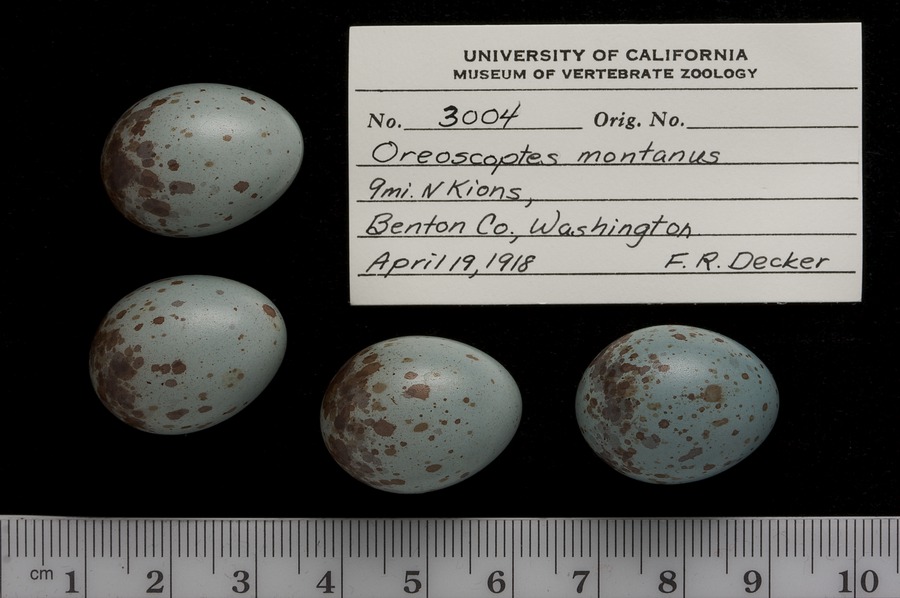 UNIVERSITY OF CALIFORNIA
MUSEUM OF VERTEBRATE ZOOLOGY
No. 3004 Orig. No.
Oreoscoptes montanus
9mi. N Kions,
Benton Co., Washington
April 19, 1918 F. R. Decker
cm 1 2 3 4 5 6 7 8 9 10